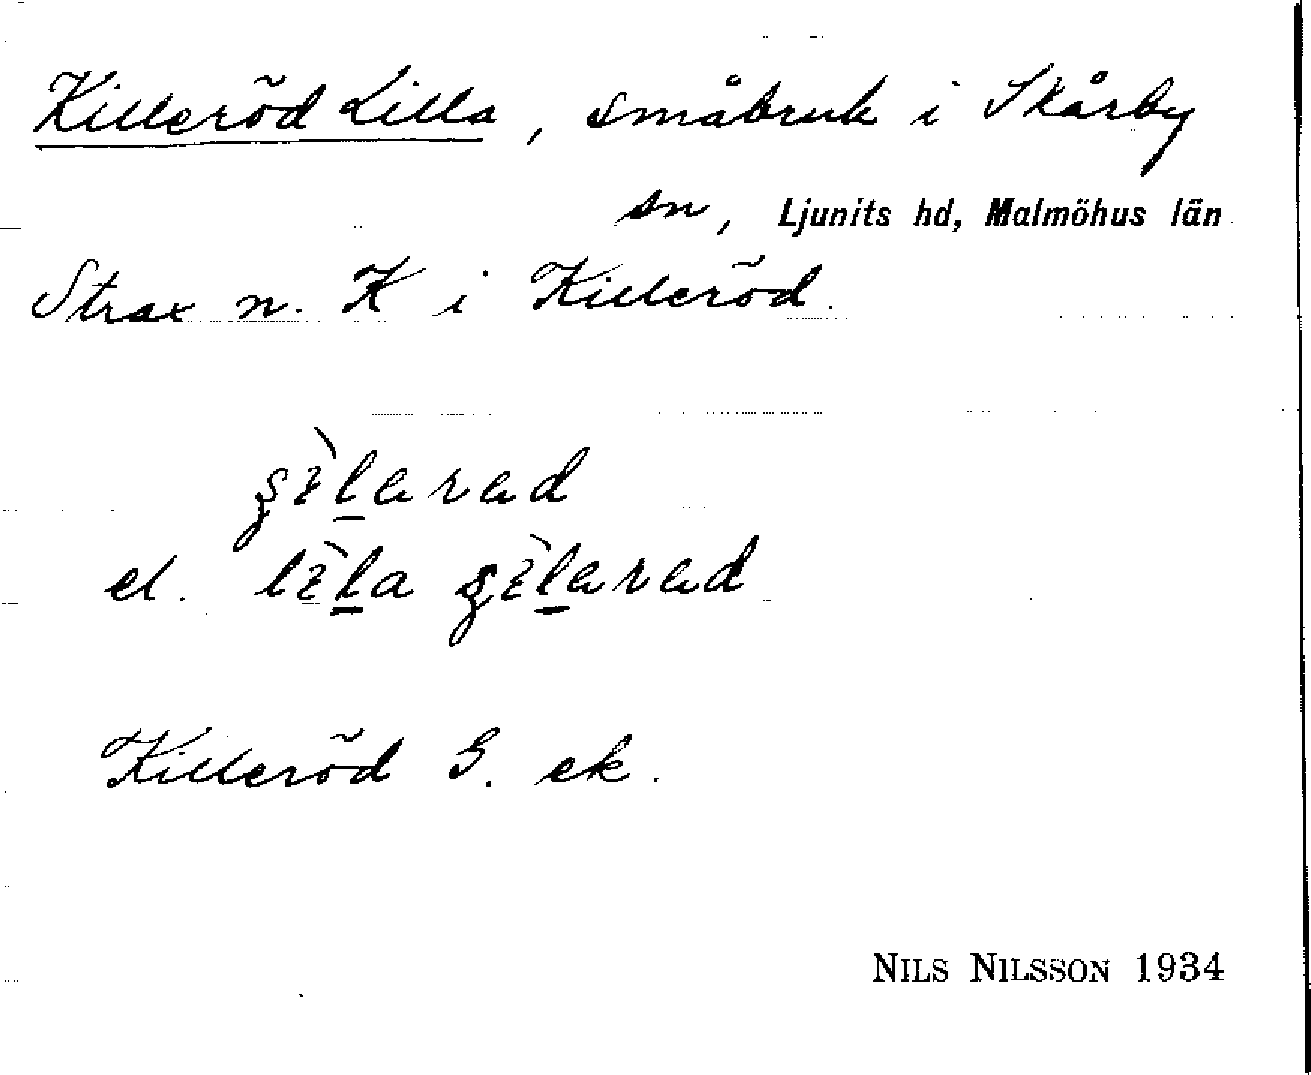 Killeröd Lilla, småbruk i Skårby
sn, Ljunits hd, Malmöhus län
Strax n. K i Killeröd.
el.
Killeröd G. ek.
NILS NILSSON 1934